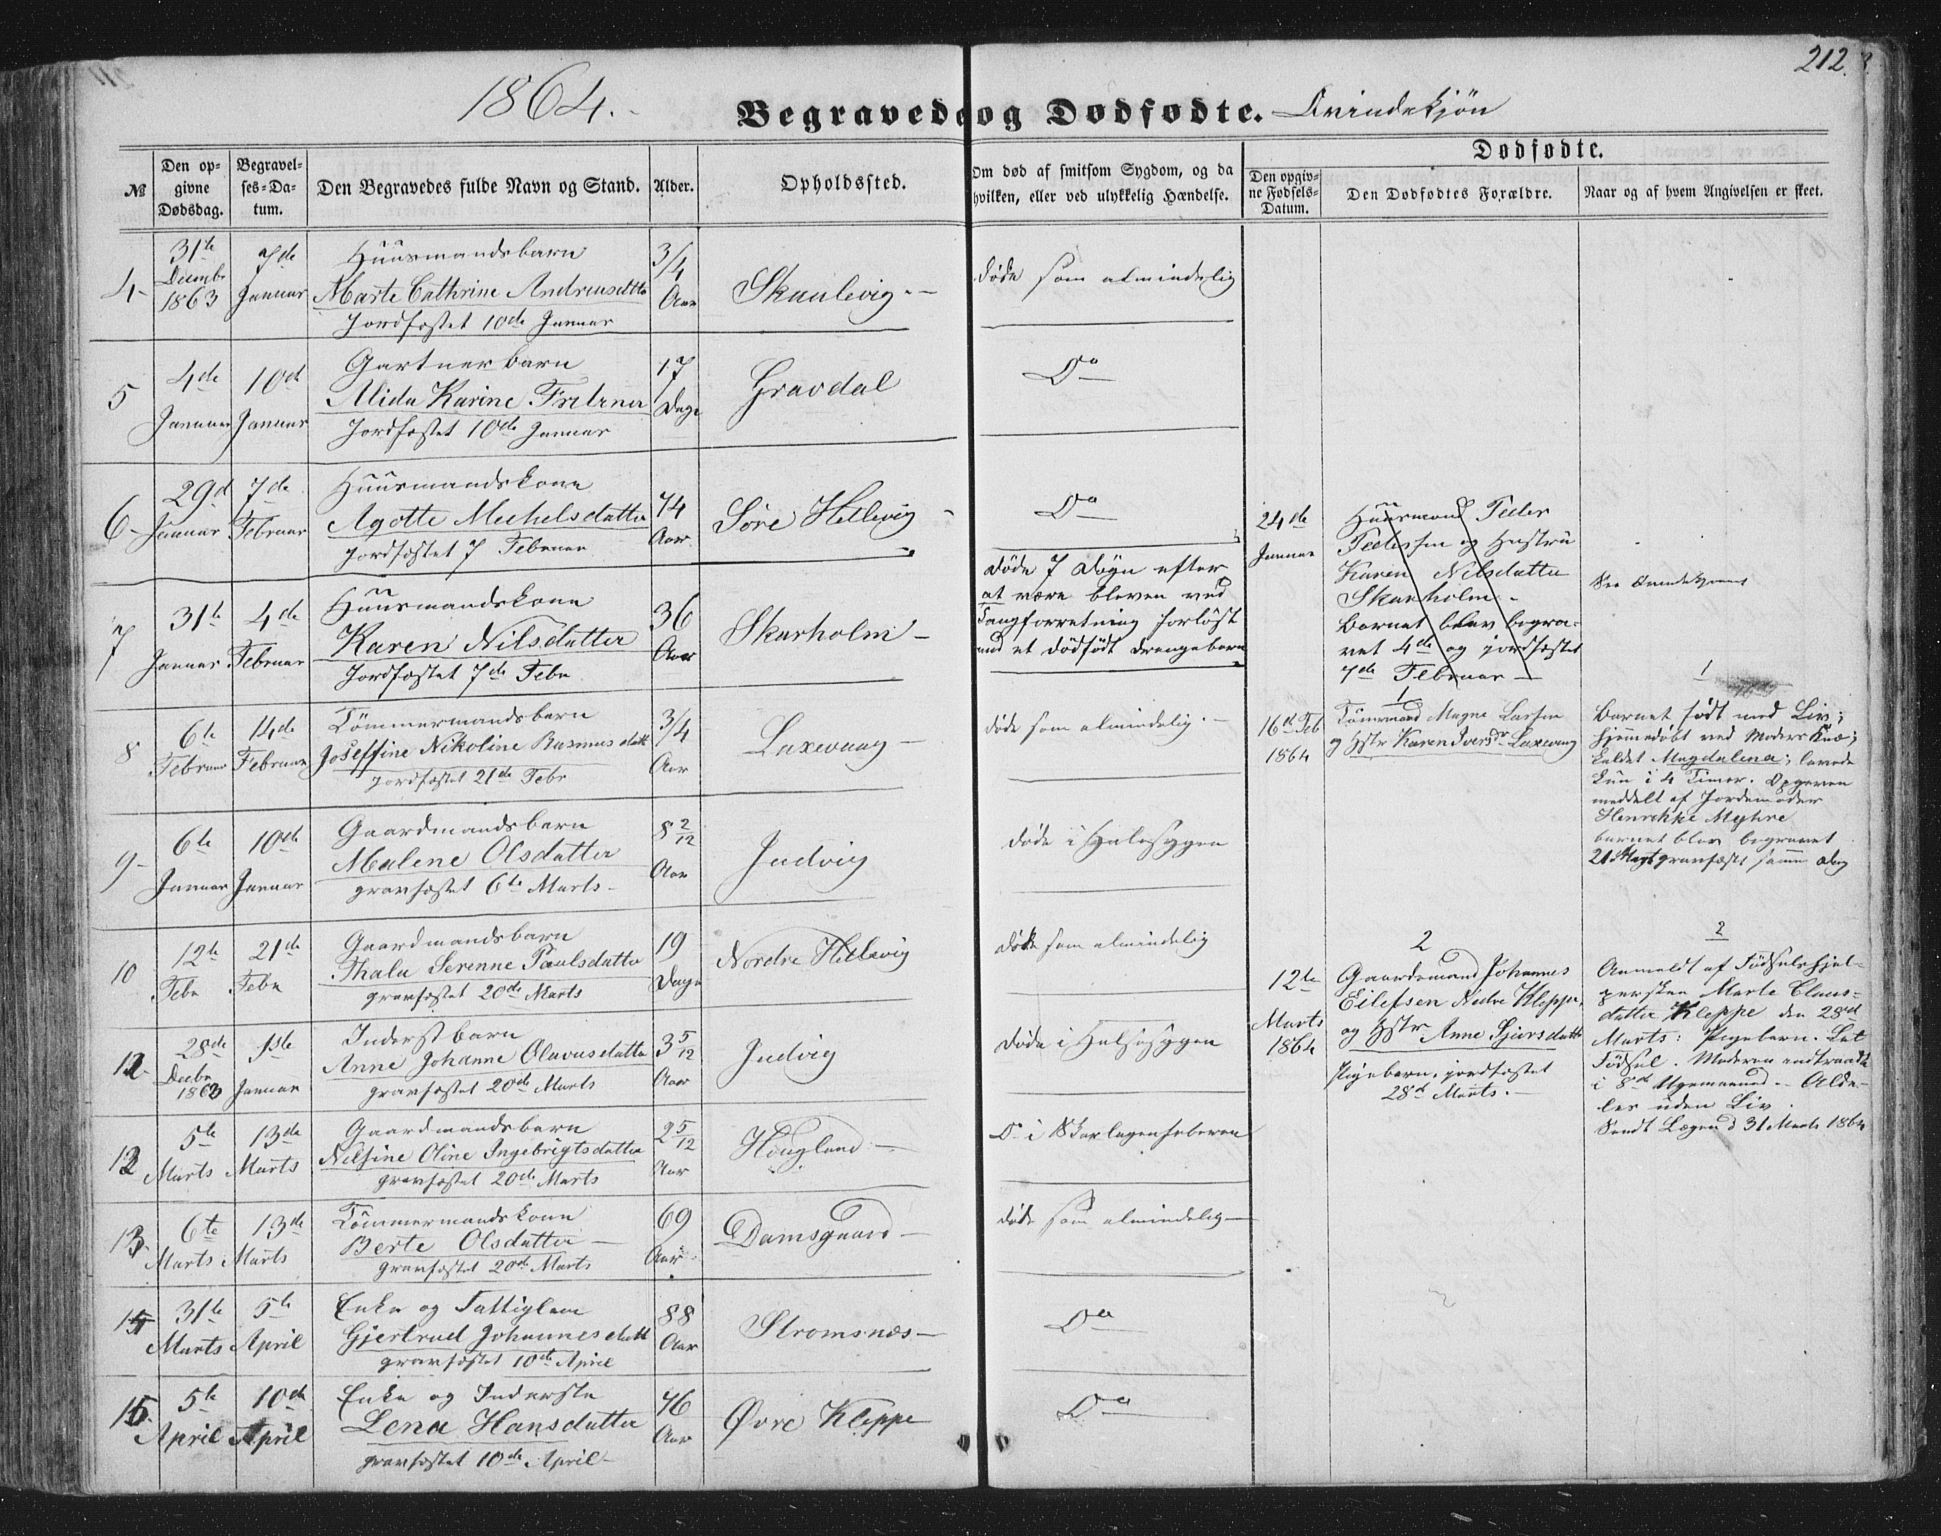 212.
1864.
Begravede og Dødfødte. Qvindekjøn
№
Den opgivne Dødsdag.
Begravelses-Datum.
Den Begravedes fulde Navn og Stand.
Alder.
Opholdssted.
Om død af smitsom Sygdom, og da hvilken, eller ved ulykkelig Hændelse.
Dødfødte.
Den opgivne Fødsels-Datum.
Den Dødfødtes Forældre.
Naar og af hvem Angivelsen er skeet.
4
31te Decembr 1863
7de Januar
Huusmandsbarn
Marte Cathrine Andreasdatter
Jordfæstet 10de Januar
3/4 Aar
Skaalevig
døde som almindelig
5
4de Januar
10de Januar
Gartnerbarn
Alida Karine
Jordfæstet 10de Januar
17 Dage
Gravdal
Do
6
29de Januar
7de Februar
Huusmandskone
Agotte Michelsdatter
Jordfæstet 7 Februar
74 Aar
Søre Hetlevig
Do
7
31te Januar
4de Februar
Huusmandskone
Karen Nilsdatter
Jordfæstet 7de Febr
36 Aar
Skarholm
døde 7 Døgn efter
at være bleven ved
Tangforretning forløst
med et dødfødt Drengebarn
24de Januar
Huusmand Peder
Pedersen og Hustru
Karen Nilsdatter
Skarholm
Barnet blev begra-
vet 4de og jordfæstet
7de Februar
8
6te Februar
14de Februar
Tømmermandsbarn
Joseffine Nikoline Rasmusdatt
Jordfæstet 21de Febr
3/4 Aar
Laxevaag
døde som almindelig
1
16de Feb 1864
Tømrmand Magne Larsen
og Hstr Karen Iversdr Laxevaag
1
Barnet født med Liv;
hjemmedøbt ved Moders Knæ;
kaldet Magdalena; levede
kun i 4 Timer. Opgaven
meddelt af Jordemoder
Henrikke Myhre
barnet blev begravet
gravfæstet samme Dag
9
6te Januar
10de Januar
Gaardmandsbarn
Malene Olsdatter
gravfæstet 6te Marts
8 2/12 Aar
Judvig
døde i Halssygen
10
12te Febr
21de Febr
Gaardmandsbarn
Thala Serenne Paulsdatter
gravfæstet 20de Marts
19 Dage
Nordre Hetlevig
døde som almindelig
2
12te Marts 1864
Gaardmand Johannes
Eilefsen Nedre Kleppe,
og Hstr Anne Sjursdatter
Pigebarn, jordfæstet
28de Marts.
2
Anmeldt af Fødselshjel-
persken Marte Claus-
datter Kleppe den 28de
Marts: Pigebarn. Let
Fødsel. Moderen
i 8de Alde-
les uden Liv.
Sendt Lægen d 31 Marts 1864
28de Decbr 1863
1ste Januar
Inderstbarn
Anne Johanne Olavusdatter
gravfæstet 20de Marts
3 5/12 Aar
Judvig
døde i Halssygen
12
5te Marts
13de Marts
Gaardmandsbarn
Nilsine Oline Ingebrigtsdatter
gravfæstet 20de Marts
2 5/12 Aar
Hougland
Do i Skarlagensfeberen
13
6te Marts
13de Marts
Tømmermandskone
Berte Olsdatter
gravfæstet 20de Marts
69 Aar
Damsgaard
døde som almindelig
31te Marts
5te April
Enke og Fattiglem
Gjertrud Johannesdatt
gravfæstet 10de April
88 Aar
Stromsnæs
Do
15
5te April
10de April
Enke og Inderste
Lena Hansdatter
gravfæstet 10de April
46 Aar
Øvre Kleppe
Do